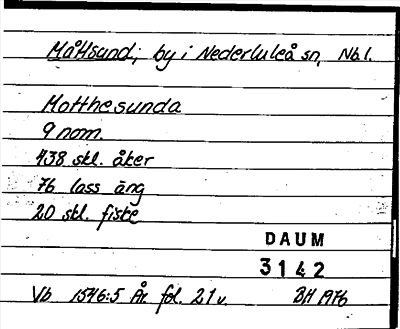 Måttsund; by i Nederluleå sn, Nb.l.
Motthesunda
9 nom.
438 skl. åker
76 lass äng
20 skl. fiske
DAUM
3142
Vb 1546:5 År fol. 21 v. BH 1976